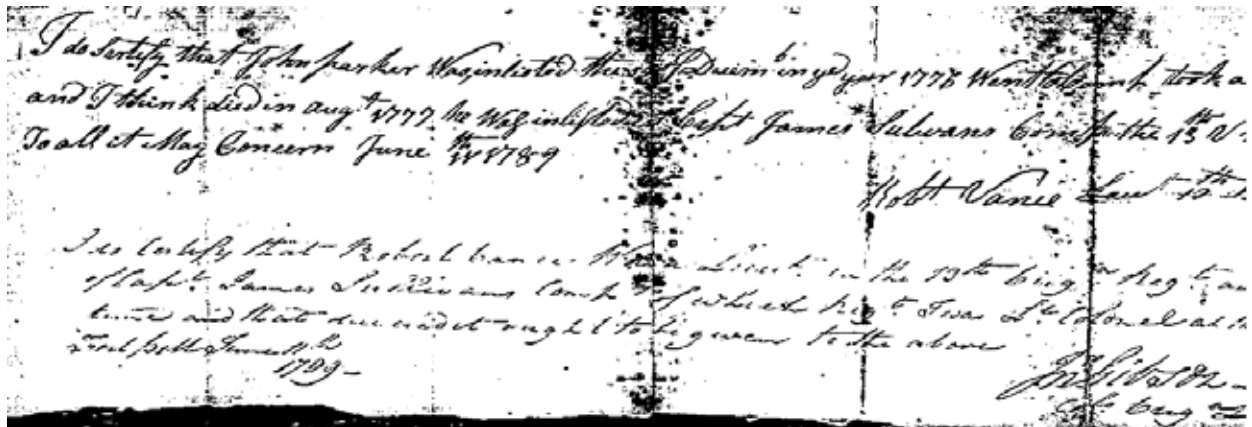 I do Certify that John parker Was inlisted the in ye year 1776 Went took
and I think died in augt 1777 he Was inlisted Capt James Sulivans Comp 13th V
To all it May Concern June 11th 1789
Robt Vance Leut 13th
I do Certify that Robert Vance Was a Lieut in the 13th Virg Regt
of Capt. James Sullivans Compy of which Regt I was Lt Colonel at
time and that due credit ought to be given to the above
June 11th
1789
Jno Gibson
Colo Virg